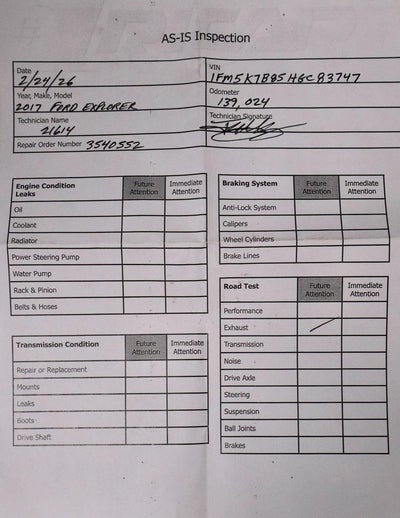 AS-IS Inspection
Date
2/24/26
VIN
1FM5K7B85HGC83747
Year, Make, Model
2017 FORD EXPLORER
Odometer
139,024
Technician Name
21614
Technician Signature
Repair Order Number 3540552
Engine Condition
Leaks
Future Attention
Immediate Attention
Oil
Coolant
Radiator
Power Steering Pump
Water Pump
Rack & Pinion
Belts & Hoses
Transmission Condition
Future Attention
Immediate Attention
Repair or Replacement
Mounts
Leaks
Boots
Drive Shaft
Braking System
Future Attention
Immediate Attention
Anti-Lock System
Calipers
Wheel Cylinders
Brake Lines
Road Test
Future Attention
Immediate Attention
Performance
Exhaust
Transmission
Noise
Drive Axle
Steering
Suspension
Ball Joints
Brakes